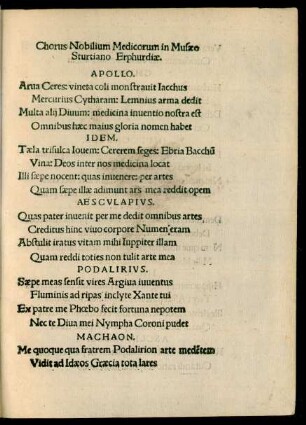 Chorus Nobilium Medicorum in Musæo
Sturtiano Erphurdiæ.
APOLLO.
Arua Ceres: vineta coli monstrauit Iacchus
Mercurius Cytharam: Lemnius arma dedit
Multa alij Diuum: medicina inuentio nostra est
Omnibus hæc maius gloria nomen habet
IDEM.
Tæla trisulca Iouem: Cererem seges: Ebria Bacchū
Vina: Deos inter nos medicina locat
Illi sæpe nocent: quas inuenere: per artes
Quam sæpe illæ adimunt ars mea reddit opem
AESCVLAPIVS.
Quas pater inuenit per me dedit omnibus artes
Creditus hinc viuo corpore Numen eram
Abstulit iratus vitam mihi Iuppiter illam
Quam reddi toties non tulit arte mea
PODALIRIVS.
Sæpe meas sensit vires Argiua iuuentus
Fluminis ad ripas inclyte Xante tui
Ex patre me Phœbo fecit fortuna nepotem
Nec te Diua mei Nympha Coroni pudet
MACHAON.
Me quoque qua fratrem Podalirion arte medētem
Vidit ad Idæos Græcia tota lares